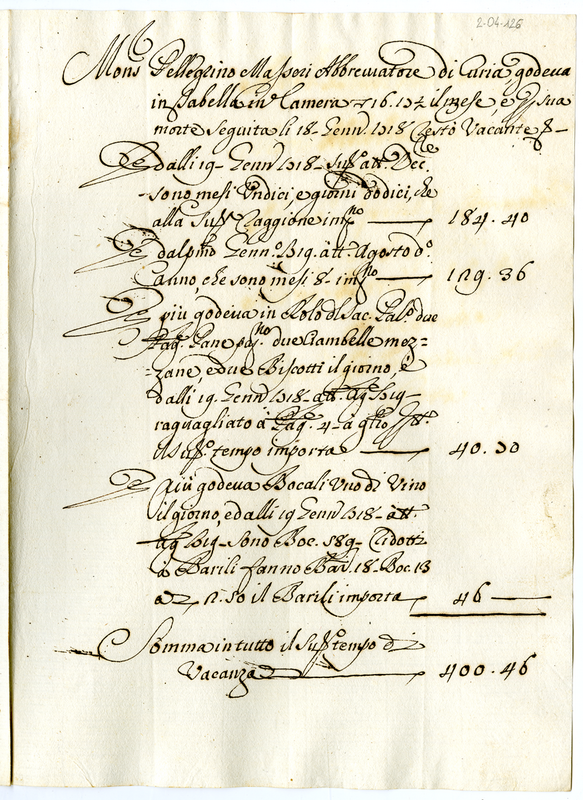 2-04-126
Mons.r Pellegrino Masseri Abbreviatore di Curia godeva
in Gabella in Camera 16.17½ il mese, e p sua
morte seguita li 18 Genn.o 1718 restò Vacante &
E dalli 19 Genn.o 1718 sud.o att. Dec.bre
sono mesi Undici, e giorni dodici, che
alla sud.a raggione imp.no — 184.40
E dal p.mo Genn.o 1719 att. Agosto d.o
anno che sono mesi 8 imp.no — 129.36
E più godeva in Rolo del Sac. Pal.o due
Pag. Pane pap.no due Ciambelle mez-
zane, e due Biscotti il giorno, e
dalli 19 Genn.o 1718 att. Ag.o 1719
raguagliato à Pag. 4 à g.lio
il sud.o tempo importa — 40.70
E più godeva Bocali Uno di Vino
il giorno, e dalli 19 Genn.o 1718 att.
Ag.o 1719 sono Boc. 589 ridotti
à Barili fanno Bar. 18 Boc. 13
à 50 il Barili importa — 46 —
Somma in tutto il sud.o tempo di
Vacanza — 400.46